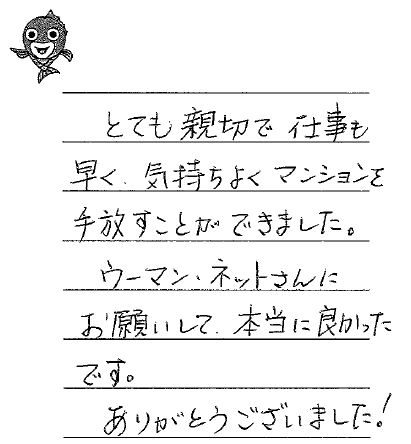 とても親切で仕事も
早く、気持ちよくマンションを
手放すことができました。
ウーマン・ネットさんに
お願いして、本当に良かった
です。
ありがとうございました!